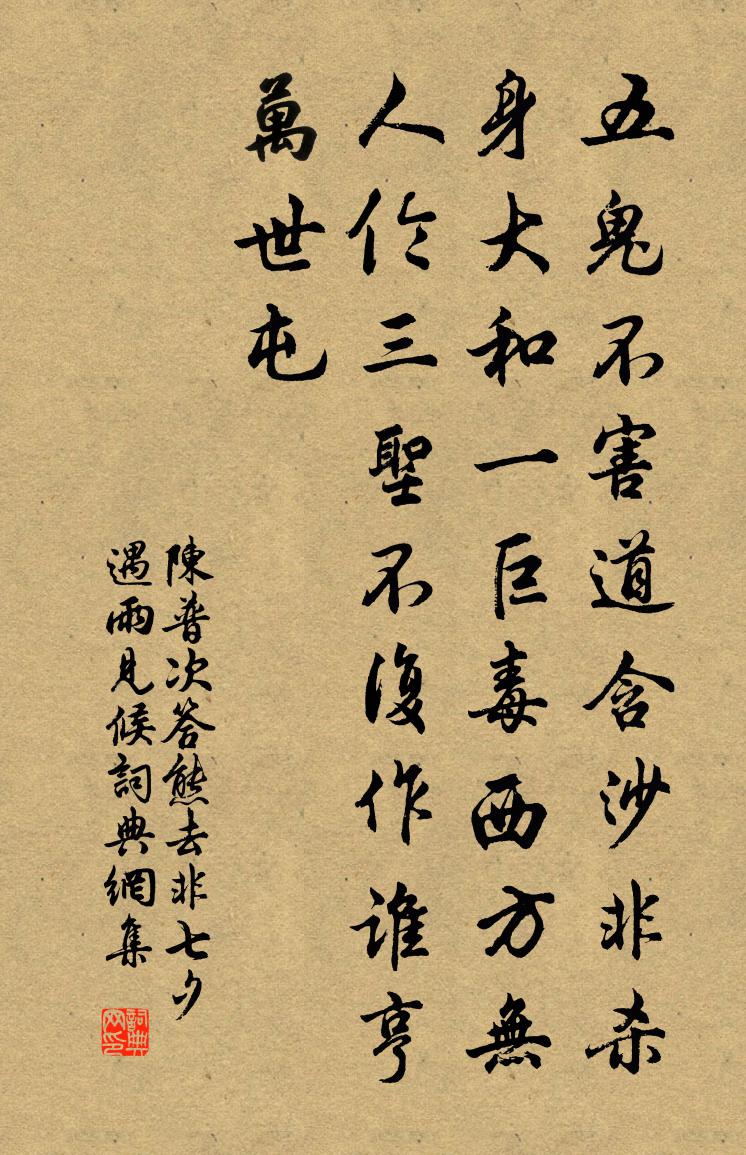 五鬼不害道含沙非杀
身大和一巨毒西方無
人伦三聖不復作誰亨
萬世屯
陳普次答熊去非七夕
遇雨見候詞典網集
詞典网印